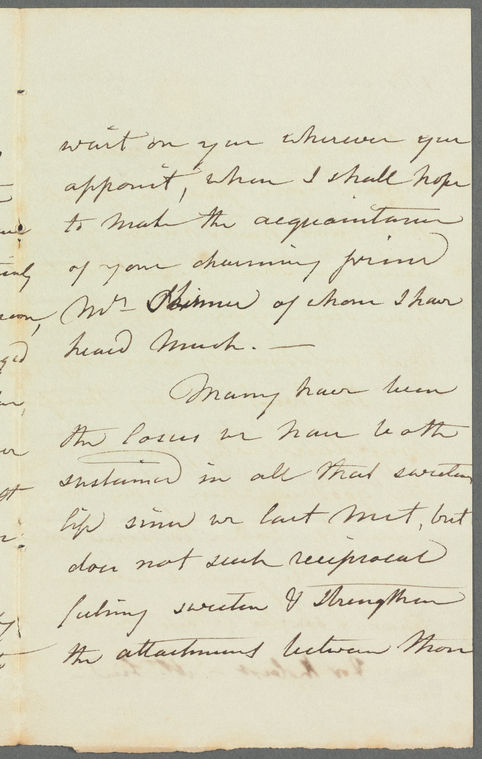 wait on you wherever you
appoint, when I shall hope
to make the acquaintance
of your charming friend
Mrs Skinner of whom I have
heard much. —
Many have been
the losses we have both
sustained in all that sweetens
life since we last met, but
does not such reciprocal
feeling sweeten & strengthen
the attachment between those